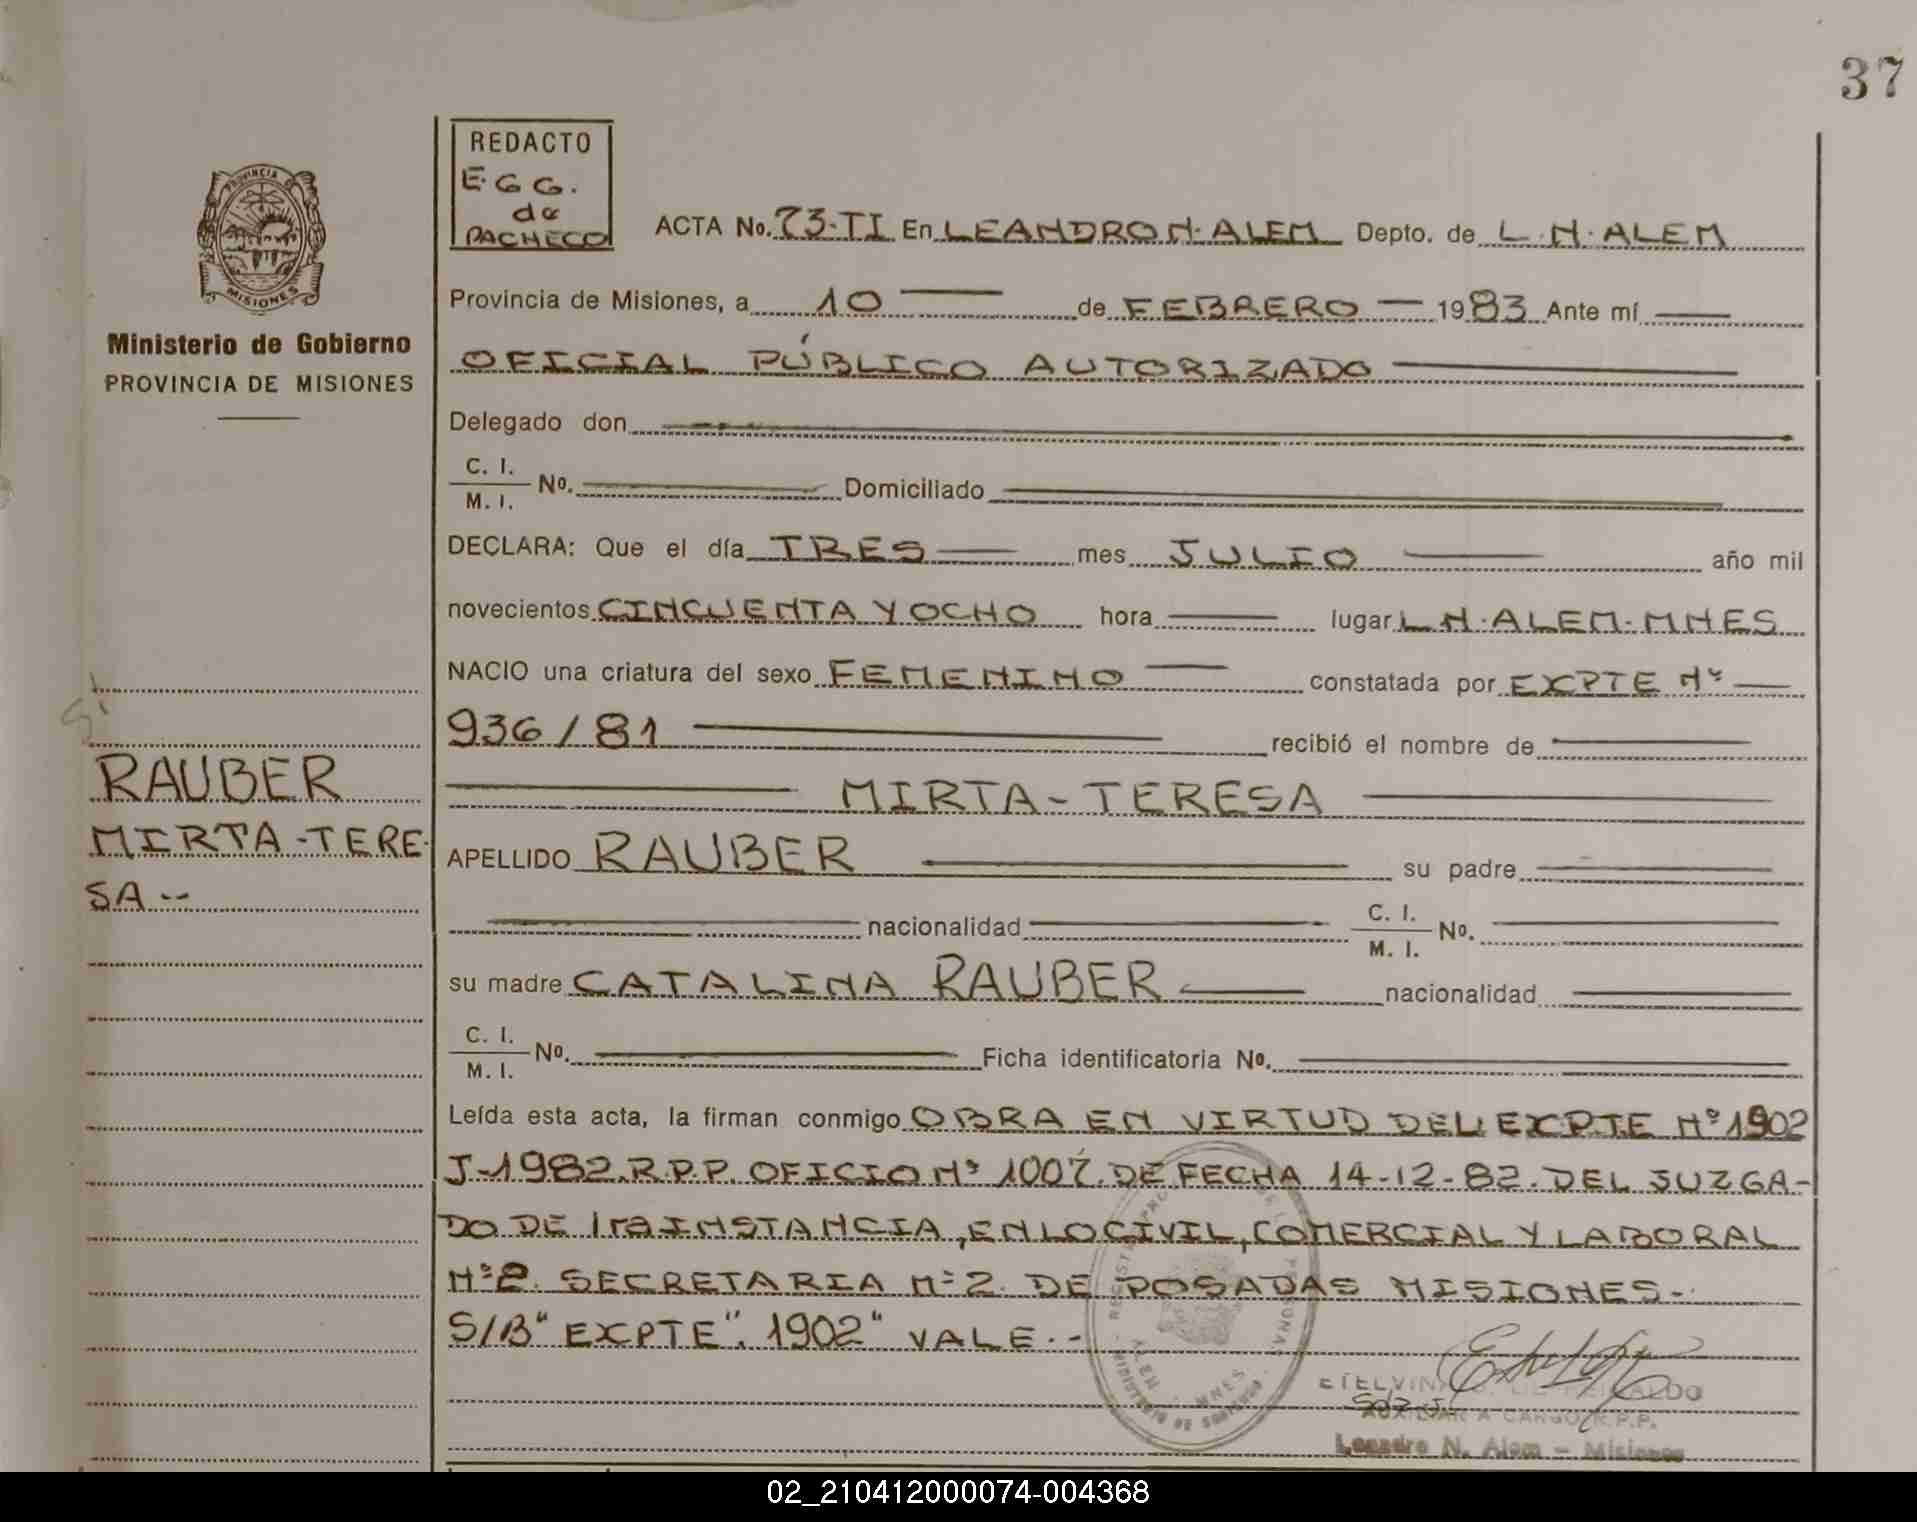 37
REDACTO
E.G G.
de
PACHECO
PROVINCIA DE
MISIONES
Ministerio de Gobierno
PROVINCIA DE MISIONES
ACTA No. 73-TI En LEANDRO N. ALEM Depto. de L. N. ALEM
Provincia de Misiones, a 10 de FEBRERO 1983 Ante mí
OFICIAL PÚBLICO AUTORIZADO
Delegado don
C. I.
M. I. No. Domiciliado
DECLARA: Que el día TRES mes JULIO año mil
novecientos CINCUENTA Y OCHO hora lugar L N. ALEM. MNES
NACIO una criatura del sexo FEMENINO constatada por EXPTE Nº
936/81 recibió el nombre de
MIRTA-TERESA
RAUBER
MIRTA-TERE-
SA--
APELLIDO RAUBER su padre
nacionalidad C. I.
M. I. No.
su madre CATALINA RAUBER nacionalidad
C. I.
M. I. No. Ficha identificatoria No.
Leída esta acta, la firman conmigo OBRA EN VIRTUD DEL EXPTE Nº 1902
J-1982. R.P.P. OFICIO Nº 1007. DE FECHA 14-12-82. DEL JUZGA-
DO DE 1ra INSTANCIA, EN LO CIVIL, COMERCIAL Y LABORAL
Nº 2. SECRETARIA Nº 2. DE POSADAS MISIONES.-
S/B "EXPTE". 1902" VALE.--
MINISTERIO DE GOBIERNO
MNES
AUXILIAR A CARGO R.P.P.
Leandro N. Alem - Misiones
02_210412000074-004368